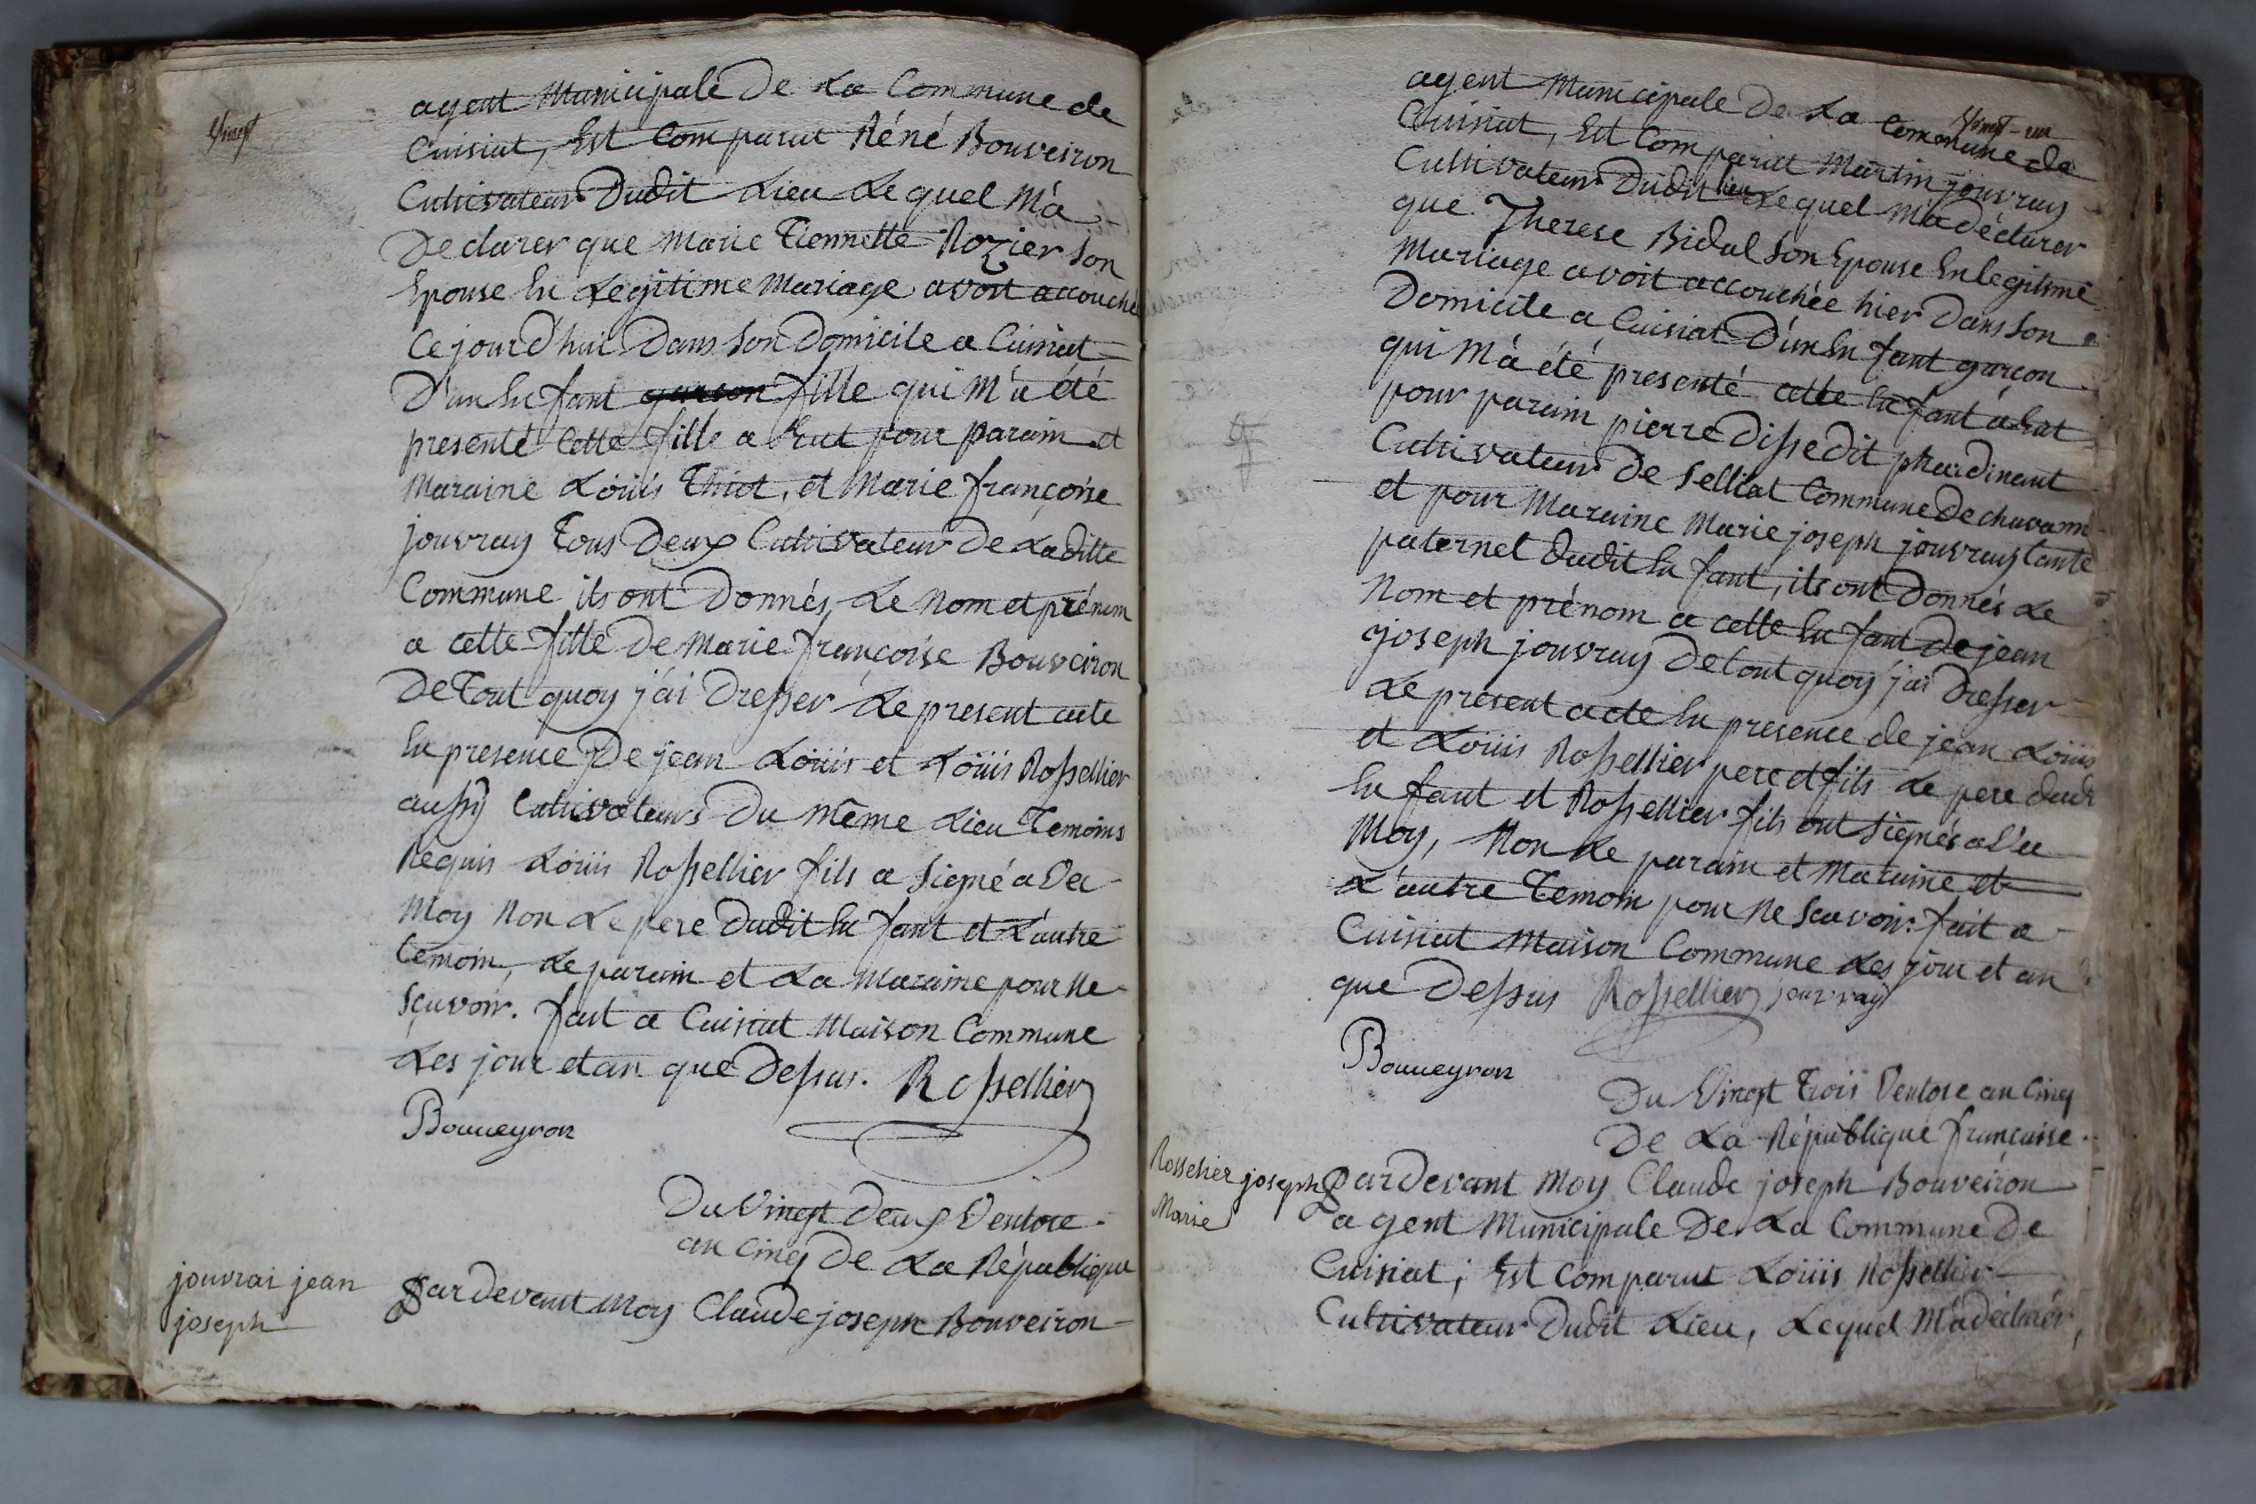 Vingt
agent Municipale De La Commune de
Cuisiat, Est Comparut Réné Bouveiron
Cultivateur Dudit Lieu Le quel M'a
Declarer que Marie Tiennette Rozier Son
Epouse En Legitime Mariage avoit accouché
Ce jourd'hui Dans Son Domicile a Cuisiat
D'un En fant garson fille qui M'a été
presenté Cette fille a Eut pour Parain et
Maraine Loüis Thiot, et Marie françoise
jouvray Tous Deux Cultivateur De Laditte
Commune ils ont Donnés Le Nom et prénom
a cette fille De Marie françoise Bouveiron
De Tout quoy j'ai Dresser Le present acte
En presence De jean Loüis et Loüis Rossellier
aussÿ Cultivateurs Du Même Lieu Temoins
Requis Loüis Rossellier fils a Signé a Vec
Moy Non Le pere Dudit En fant et L'autre
temoin, Le parain et La Maraine pour Ne
Sçavoir. fait a Cuisiat Maison Commune
Les jour et an que Dessus. Rossellier
Bouueyron
Du Vingt Deux Ventose
an Cinq De La République
jouvrai jean
joseph
Par devant Moy Claude joseph Bouveiron
Vingt-un
agent Municipale De La Commune de
Cuisiat, Est Comparut Martin jouvray
Cultivateur Dudit lieu Le quel M'a déclarer
que Therese Bidal Son Epouse En legitime
Mariage avoit accouchée hier Dans Son
Domicile a Cuisiat D'un En fant garçon
qui M'a été presenté cette En fant a Eut
pour parain pierre Disse dit
Cultivateur De Selliat Commune De chavann
et pour Maraine Marie joseph jouvray tante
paternel dudit En fant, ils ont Donnés Le
Nom et prénom a cette En fant de jean
joseph jouvray De tout quoy j'ai Dresser
Le present acte En presence de jean Loüis
et Loüis Rossellier pere et fils Le pere dud
En fant et Rossellier fils ont Signés a Vec
Moy, Non Le parain et Maraine et
L'autre Temoin pour Ne Sçavoir: fait a
Cuisiat Maison Commune Les jour et an
que Dessus Rossellier jouvray
Bouueyron
Du Vingt Trois Ventose an Cinq
De La République française.
Rosselier joseph
Marie
Par devant Moy Claude joseph Bouveiron
agent Municipale De La Commune De
Cuisiat; Est Comparut Loüis Rossellier
Cultivateur Dudit Lieu, Lequel M'a déclarér,